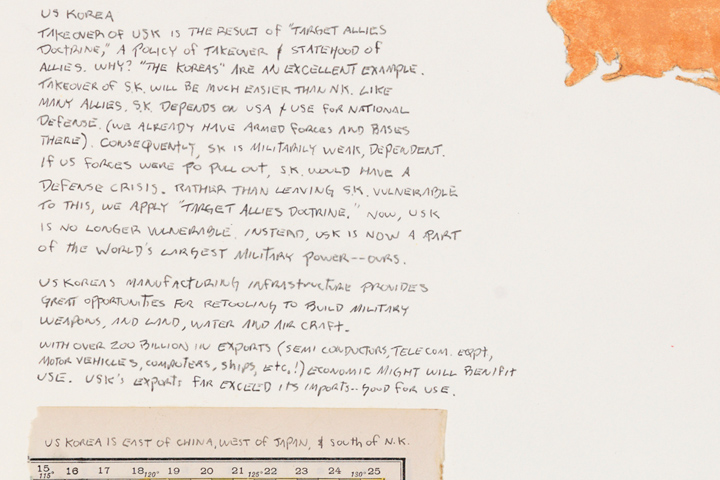 US KOREA
TAKEOVER OF USK IS THE RESULT OF "TARGET ALLIES
DOCTRINE," A POLICY OF TAKEOVER & STATEHOOD OF
ALLIES. WHY? "THE KOREAS" ARE AN EXCELLENT EXAMPLE.
TAKEOVER OF S.K. WILL BE MUCH EASIER THAN N.K. LIKE
MANY ALLIES, S.K. DEPENDS ON USA & USE FOR NATIONAL
DEFENSE. (WE ALREADY HAVE ARMED FORCES AND BASES
THERE). CONSEQUENTLY, SK IS MILITARILY WEAK, DEPENDENT.
IF US FORCES WERE TO PULL OUT, S.K. WOULD HAVE A
DEFENSE CRISIS. RATHER THAN LEAVING S.K. VULNERABLE
TO THIS, WE APPLY "TARGET ALLIES DOCTRINE." NOW, USK
IS NO LONGER VULNERABLE. INSTEAD, USK IS NOW A PART
OF THE WORLD'S LARGEST MILITARY POWER--OURS.
US KOREAS MANUFACTURING INFRASTRUCTURE PROVIDES
GREAT OPPORTUNITIES FOR RETOOLING TO BUILD MILITARY
WEAPONS, AND LAND, WATER AND AIR CRAFT.
WITH OVER 200 BILLION IN EXPORTS (SEMI CONDUCTORS, TELECOM. EQPT,
MOTOR VEHICLES, COMPUTERS, SHIPS, ETC.!) ECONOMIC MIGHT WILL BENIFIT
USE. USK'S EXPORTS FAR EXCEED ITS IMPORTS--GOOD FOR USE.
US KOREA IS EAST OF CHINA, WEST OF JAPAN, & SOUTH OF N.K.
15 115° 16 17 18 120° 19 20 21 125° 22 23 24 130° 25